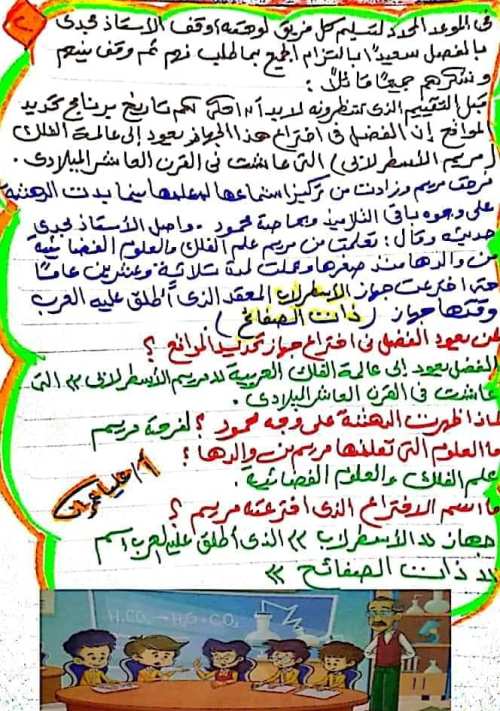 ٢
فى الموعد المحدد لتسليم كل فريق لوهمته أوقف الأستاذ مجدى
بالمفصل سعيدًا بالتزام الجميع بما طلب منهم ثم وقف بينهم
وشكرهم جميعًا قائلاً:
قبل التقييم الذى تنتظرونه لابد أن احكى لكم تاريخ برنامج تحديد
المواقع إن الفضل فى اختراع هذا الجهاز يعود إلى عالمة الفلك
(مريم الأسطرلابى) التى عاشت فى القرن العاشر الميلادى.
فرحت مريم وزادت من تركيز استماعها لمعلمها بينما بدت الدهشة
على وجوه باقى التلاميذ وبخاصة محمود. واصل الأستاذ مجدى
حديثه وقال: تعلمت من مريم علم الفلك والعلوم الفضائية
من والدها منذ صغرها وعملت لمدة ثلاثة وعشرين عامًا
حتى اخترعت جهاز الأسطرلاب المعقد الذى أطلق عليه العرب
وقتها جهاز (ذات الصفائح)
لمن يعود الفضل فى اختراع جهاز تحديد المواقع؟
الفضل يعود إلى عالمة الفلك العربية "مريم الأسطرلابى" التى
عاشت فى القرن العاشر الميلادى.
لماذا ظهرت الدهشة على وجه محمود؟ لفرحة مريم
ما العلوم التى تعلمتها مريم من والدها؟
علم الفلك والعلوم الفضائية.
ما اسم الاختراع الذى اخترعته مريم؟
جهاز "الأسطرلاب" الذى أطلق عليه العرب اسم
"ذات الصفائح"
H₂CO₃ → H₂O + CO₂